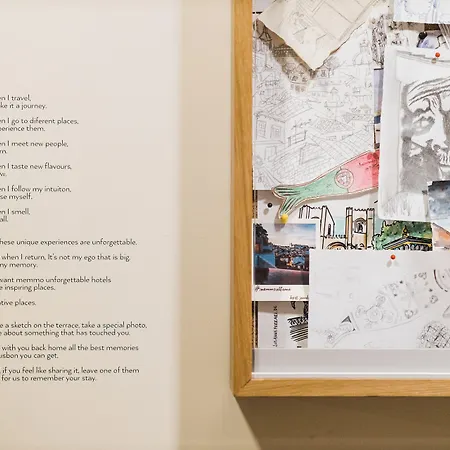 n I travel,
ke it a journey.
n I go to diferent places,
perience them.
n I meet new people,
rn.
n I taste new flavours,
w.
n I follow my intuiton,
se myself.
n I smell,
all.
hese unique experiences are unforgettable.
when I return, It's not my ego that is big,
my memory.
want memmo unforgettable hotels
e inspiring places.
ative places.
e a sketch on the terrace, take a special photo,
e about something that has touched you.
with you back home all the best memories
usbon you can get,
if you feel like sharing it, leave one of them
for us to remember your stay.